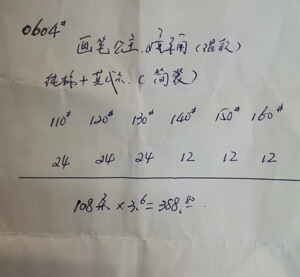 0604#
画笔公主.喷斗角(混款)
纯棉+莫代尔.(简装)
110# 120# 130# 140# 150# 160#
24 24 24 12 12 12
108条×3.6=388.80.